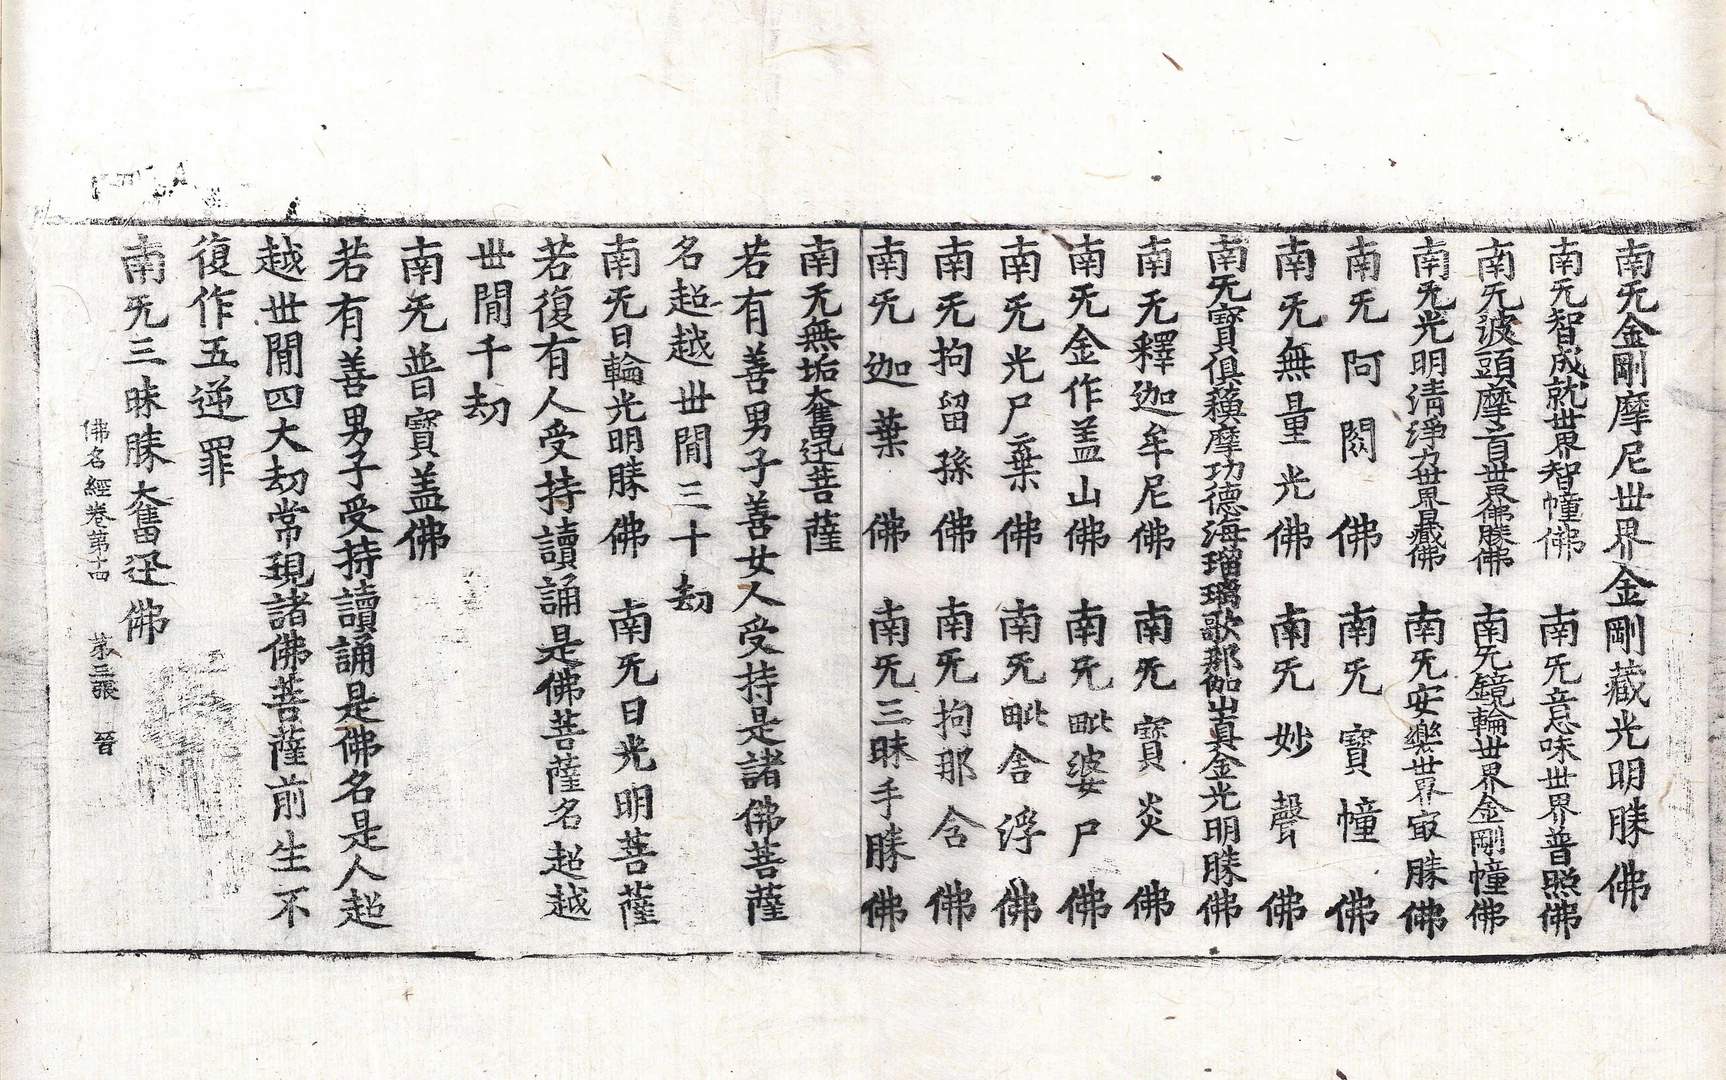 南无金剛摩尼世界金剛藏光明勝佛
南无智成就世界智幢佛　南无意味世界普照佛
南无波頭摩首世界佛勝佛　南无鏡輪世界金剛幢佛
南无光明清淨力世界日藏佛　南无安樂世界㝡勝佛
南无阿閦佛　南无寶幢佛
南无無量光佛　南无妙聲佛
南无寶俱蘓摩功德海瑠璃歌那伽山真金光明勝佛
南无釋迦牟尼佛　南无寶炎佛
南无金作盖山佛　南无毗婆尸佛
南无光尸棄佛　南无毗舍浮佛
南无拘留孫佛　南无拘那含佛
南无迦葉佛　南无三昧手勝佛
南无無垢奮迅菩薩
若有善男子善女人受持是諸佛菩薩
名超越世閒三十劫
南无日輪光明勝佛　南无日光明菩薩
若復有人受持讀誦是佛菩薩名超越
世閒千劫
南无普寶盖佛
若有善男子受持讀誦是佛名是人超
越世閒四大劫常現諸佛菩薩前生不
復作五逆罪
南无三昧勝奮迅佛
佛名經卷第十四　第三張　晉